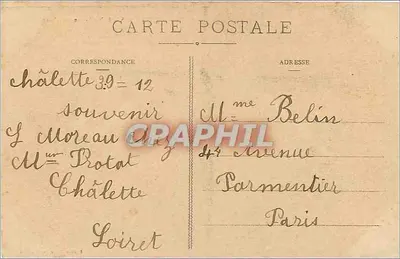 CARTE POSTALE
CORRESPONDANCE
Châlette 29 = 12
souvenir
L Moreau
Mon Protat
Châlette
Loiret
ADRESSE
Mme Belin
44 Avenue
Parmentier
Paris
CPAPHIL